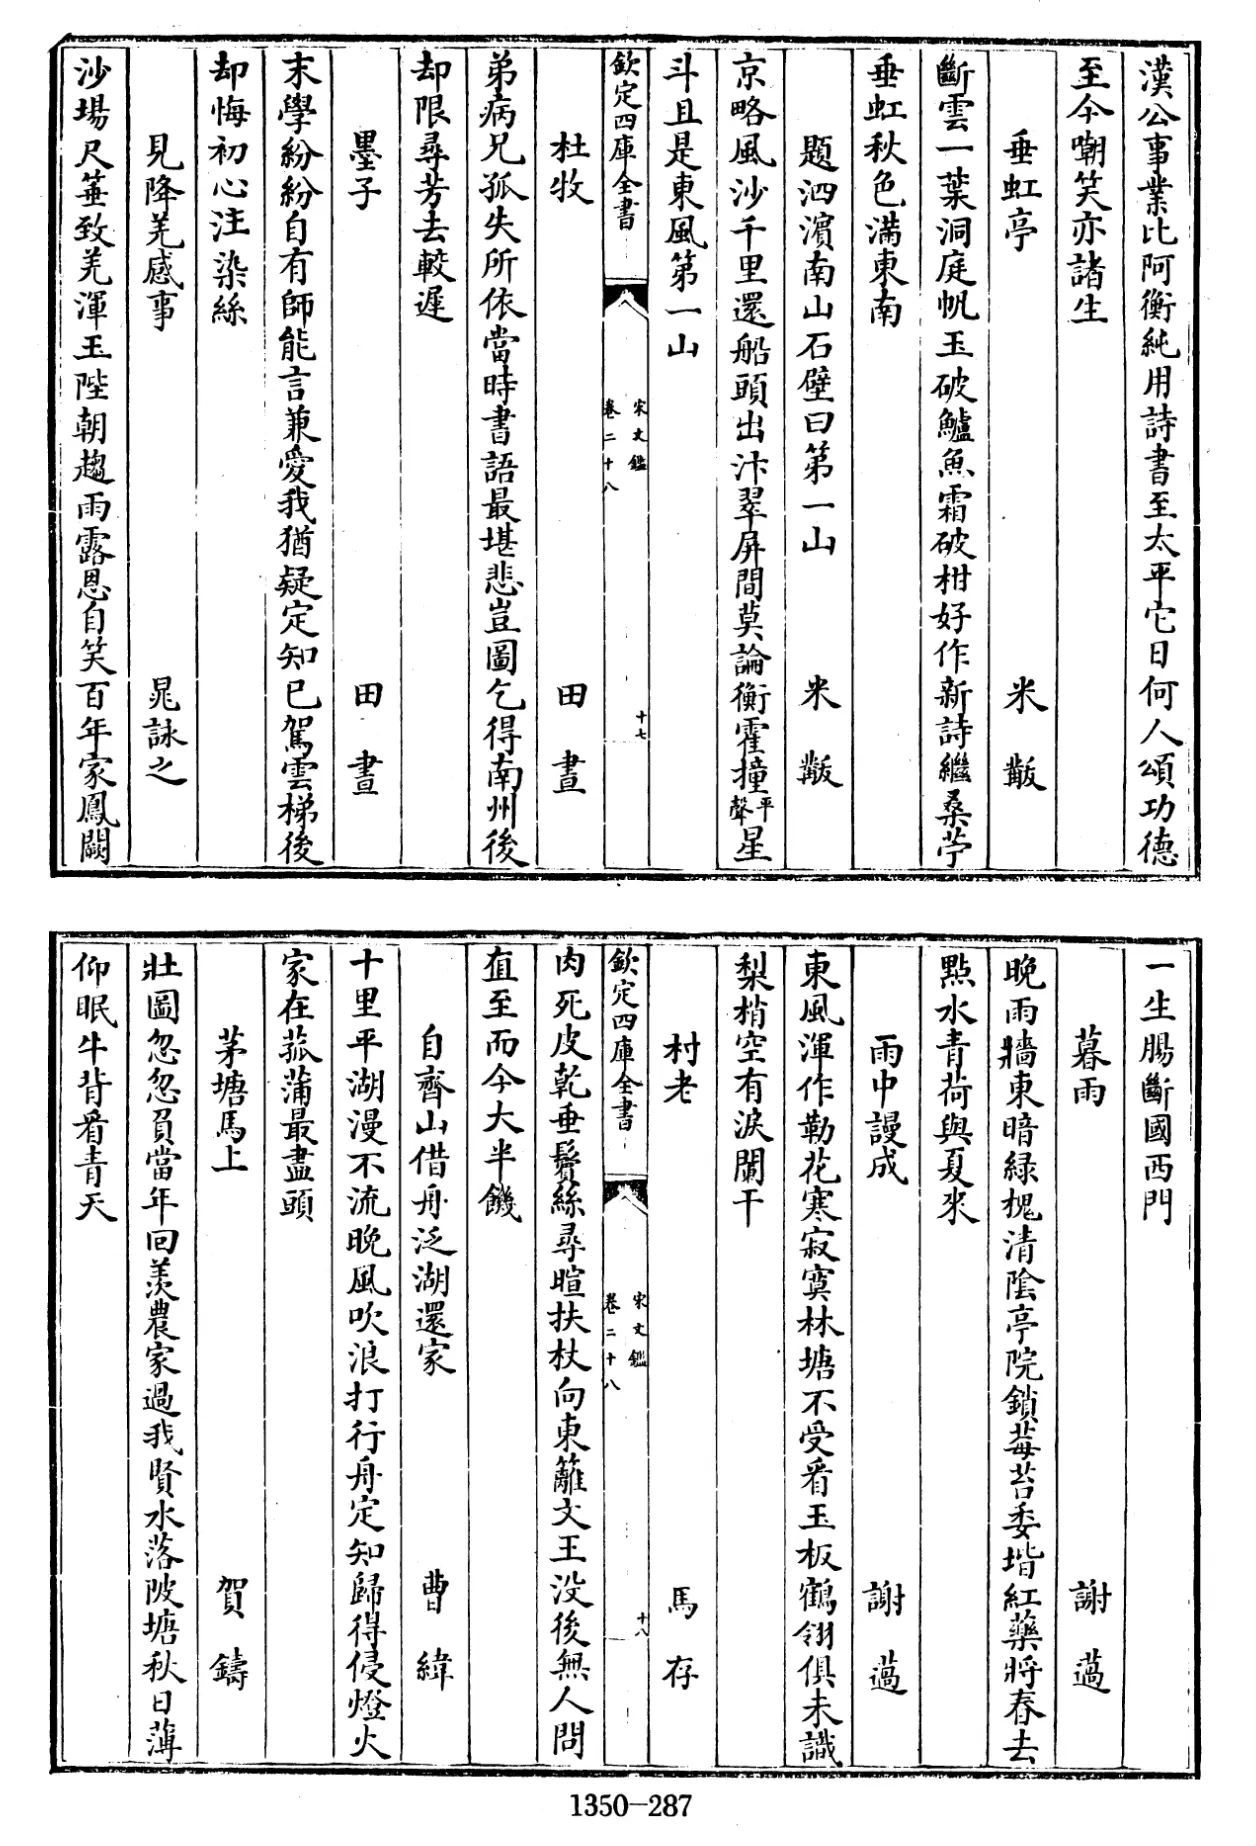 漢公事業比阿衡純用詩書至太平它日何人頌功德
至今嘲笑亦諸生
垂虹亭 米黻
斷雲一葉洞庭帆玉破鱸魚霜破柑好作新詩繼桑苧
垂虹秋色滿東南
題泗濱南山石壁曰第一山 米黻
京略風沙千里還船頭出汴翠屏間莫論衡霍撞平聲星
斗且是東風第一山
欽定四庫全書 宋文鑑 卷二十八 十七
杜牧 田晝
弟病兄孤失所依當時書語最堪悲豈圖乞得南州後
却限尋芳去較遲
墨子 田晝
末學紛紛自有師能言兼愛我猶疑定知已駕雲梯後
却悔初心泣染絲
見降羌感事 晁詠之
沙場尺箠致羌渾玉陛朝趨雨露恩自笑百年家鳳闕
一生腸斷國西門
暮雨 謝薖
晚雨牆東暗緑槐清陰亭院鎖莓苔委堦紅藥將春去
點水青荷與夏來
雨中謾成 謝薖
東風渾作勒花寒寂寞林塘不受看玉板鶴翎俱未識
梨梢空有淚闌干
村老 馬存
欽定四庫全書 宋文鑑 卷二十八 十八
肉死皮乾垂鬢絲尋暄扶杖向東籬文王没後無人問
直至而今大半饑
自齊山借舟泛湖還家 曹緯
十里平湖漫不流晚風吹浪打行舟定知歸得侵燈火
家在菰蒲最盡頭
茅塘馬上 賀鑄
壯圖忽忽負當年回羨農家過我賢水落陂塘秋日薄
仰眠牛背看青天
1350—287